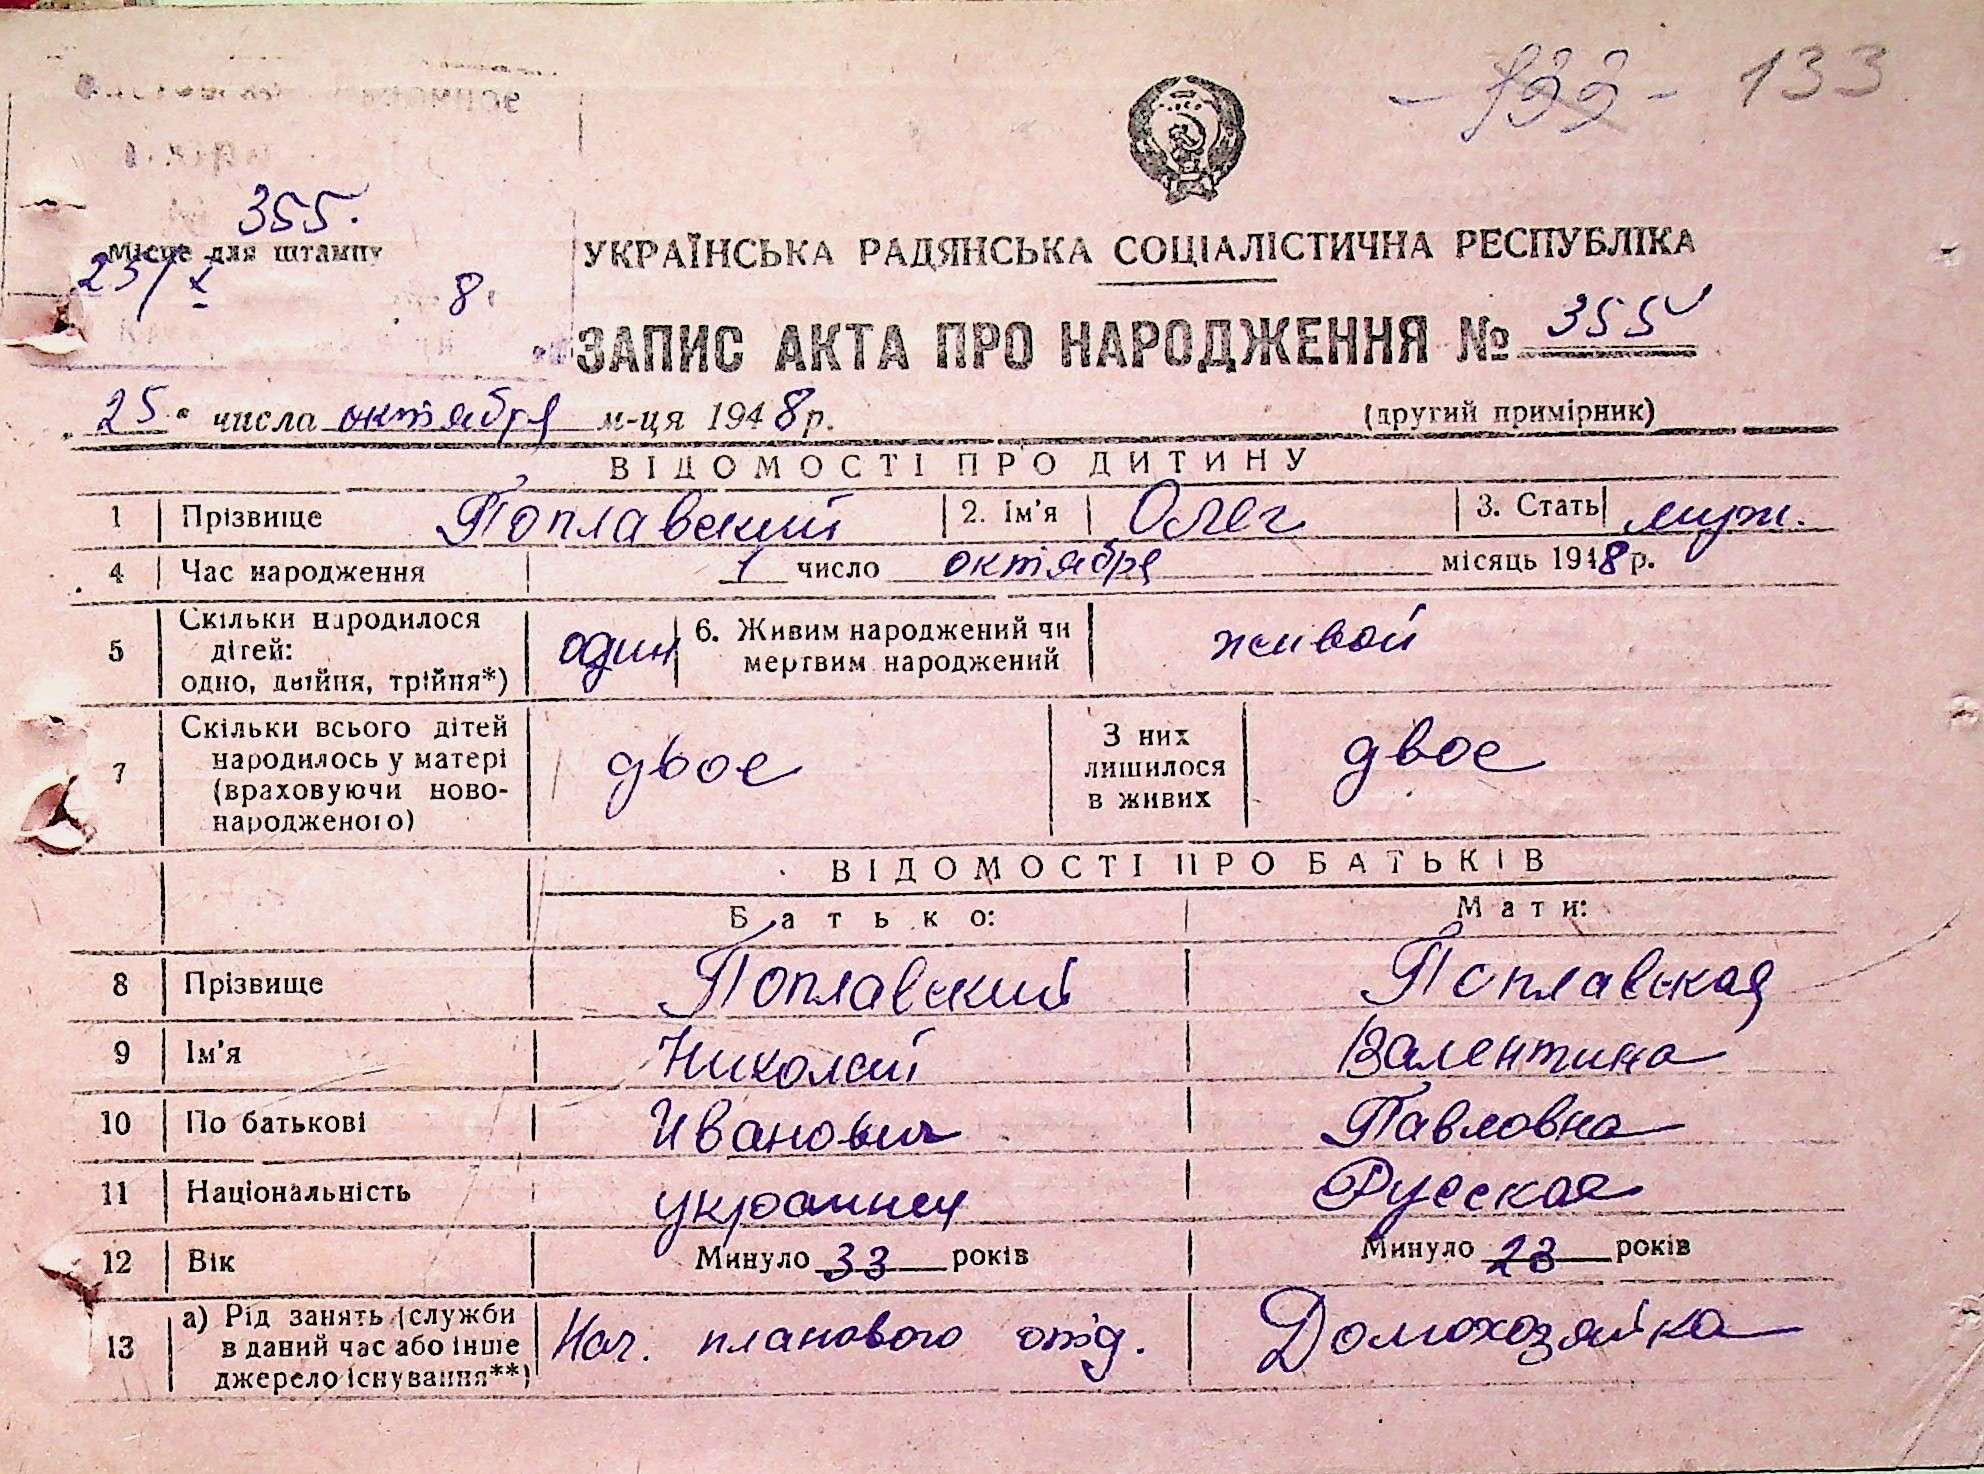 133
355.
Місце для штампу
25/X 8
УКРАЇНСЬКА РАДЯНСЬКА СОЦІАЛІСТИЧНА РЕСПУБЛІКА
ЗАПИС АКТА ПРО НАРОДЖЕННЯ № 355
„25“ числа октября м-ця 1948 р. (другий примірник)
ВІДОМОСТІ ПРО ДИТИНУ
1 Прізвище Поплавский 2. Ім'я Олег 3. Стать муж.
4 Час народження 1 число октября місяць 1948 р.
5 Скільки народилося дітей: одно, двійня, трійня*) один 6. Живим народжений чи мертвим народжений живой
7 Скільки всього дітей народилось у матері (враховуючи ново-народженого) двое З них лишилося в живих двое
ВІДОМОСТІ ПРО БАТЬКІВ
Батько: Мати:
8 Прізвище Поплавский Поплавская
9 Ім'я Николай Валентина
10 По батькові Иванович Павловна
11 Національність украинец Русская
12 Вік Минуло 33 років Минуло 23 років
13 а) Рід занять (служби в даний час або інше джерело існування**) Нач. планового отд. Домохозяйка